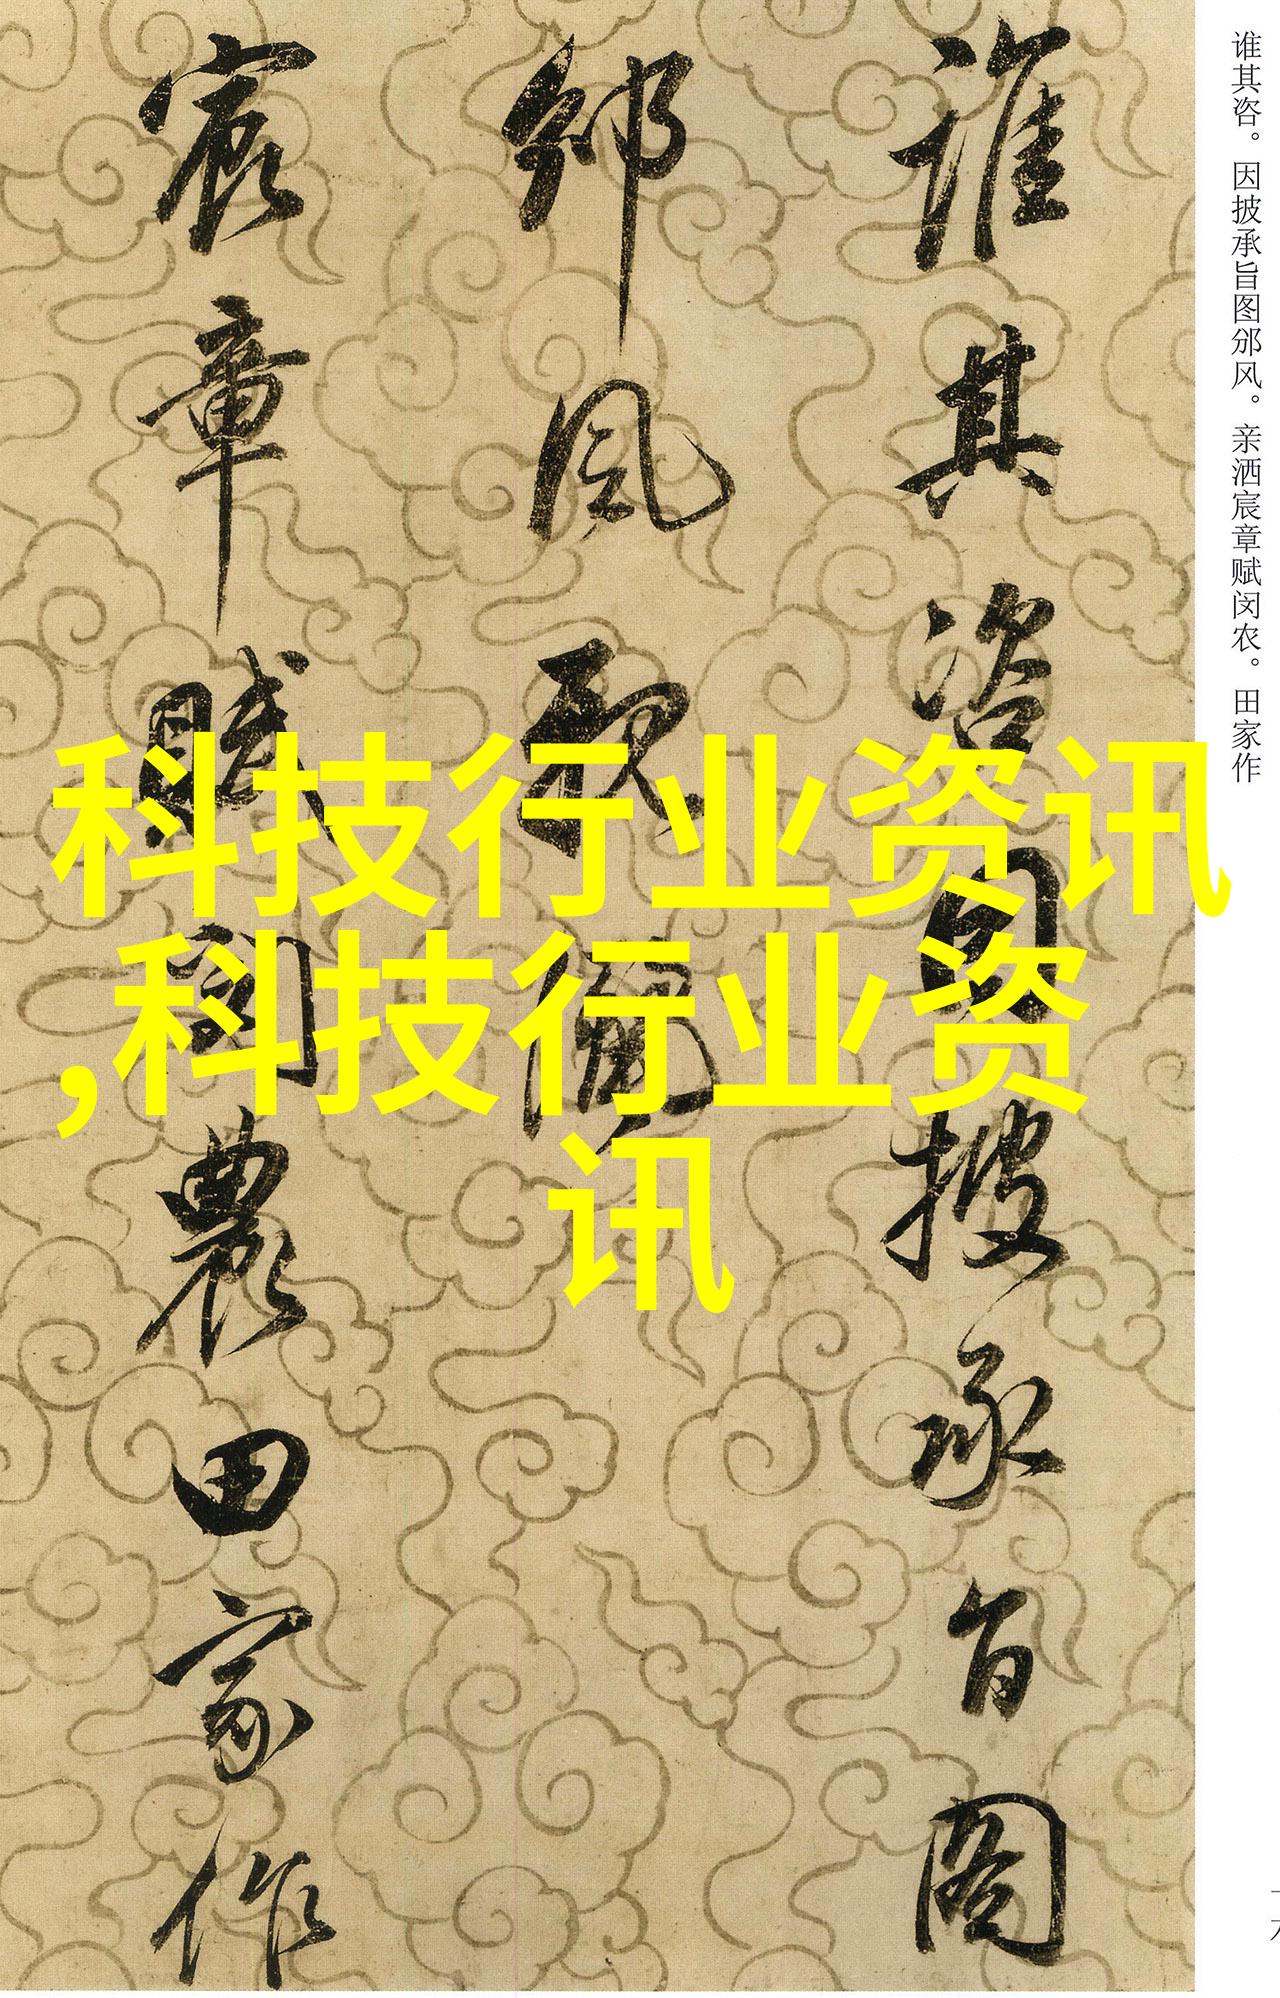 谁其咨。因披承旨图邠风。亲洒宸章赋闵农。田家作
谁其咨因披承旨图
邠风亲洒
宸章赋闵农田家作
科技行业资讯
,科技行业资
讯
十六